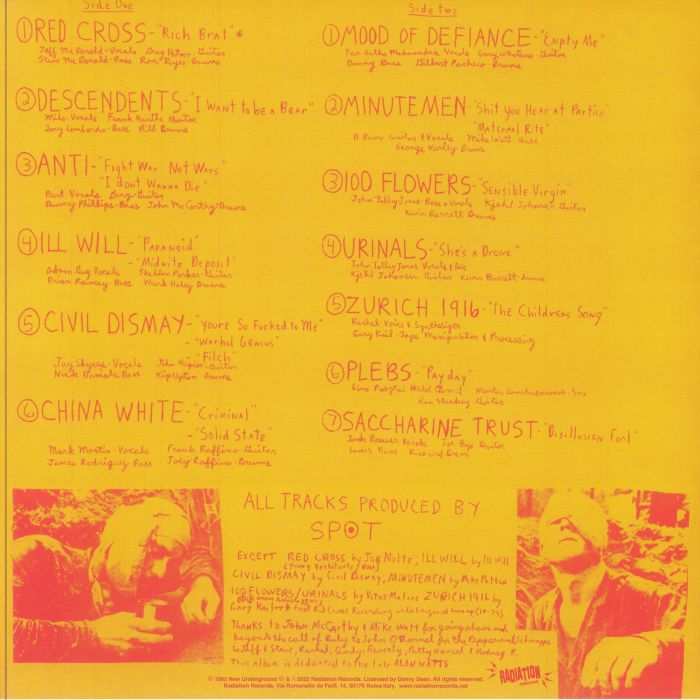 Side One
①RED CROSS-"Rich Brat"*
Jeff McDonald-Vocals Greg Hetson-Guitar
Steve McDonald-Bass Ron Reyes-Drums
②DESCENDENTS-"I Want to be a Bear"
Milo-Vocals Frank Guitar
Tony Lombardo-Bass Bill Drums
③ANTI-"Fight War Not Wars"
"I dont Wanna Die"
Bert Vocals Gary-Guitar
Danny Phillips-Bass John McCarthy-Drums
④ILL WILL-"Paranoid"
-"Midnite Deposit"
Adam Guy-Vocals Sheldon Guitar
Brian Bass Mark Haley Drums
⑤CIVIL DISMAY-"Youre So Fucked to Me"
-"Warhol Genius"
-"Filch"
Jay Vocals John Guitar
Nick Bass Kip Upton Drums
⑥CHINA WHITE-"Criminal"
-"Solid State"
Mark Martin-Vocals Frank Raffino-Guitar
James Rodriguez Bass Joey Raffino-Drums
Side Two
①MOOD OF DEFIANCE-"Empty Me"
Vocals Gary Guitar
Danny-Bass Gilbert Pacheco-Drums
②MINUTEMEN-"Shit You Hear at Parties"
"Maternal Rite"
D. Boon Guitar & Vocals Mike Watt Bass
George Hurley-Drums
③100 FLOWERS-"Sensible Virgin"
John Talley Jones-Bass & Vocals Kjehl Johansen-Guitar
Kevin Barrett Drums
④URINALS-"She's a Drone"
John Talley Jones Vocals & Bass
Kjehl Johansen Guitar Kevin Barrett-Drums
⑤ZURICH 1916-"The Childrens Song"
Rachel-Voice & Synthesizer
Gary Kail-Tape Manipulation & Processing
⑥PLEBS-"Payday"
Sax
Ken Guitar
⑦SACCHARINE TRUST-"Disillusion Fool"
Jack Brewer Vocals Joe Baiza Guitar
Bass Drums
ALL TRACKS PRODUCED BY
SPOT
EXCEPT RED CROSS by Joe Nolte, ILL WILL by Ill Will
CIVIL DISMAY by Civil Dismay, MINUTEMEN by Mike Patton
100 FLOWERS/URINALS by Vitus Matare ZURICH 1916 by
Gary Kail
Thanks to John McCarthy & Mike Watt for going above and
beyond the call of Duty to John O'Donnel for the
to Jeff & Steve, Rachel, Cindy, Beverly, Patty
This album is dedicated to the late ALAN WATTS
RADIATION
© 1982 New Underground ℗ & © 2025 Radiation Records. Licensed by Danny Dean. All rights reserved.
Radiation Records. Via Romanello da Forlì, 14, 00176 Roma Italy. www.radiationrecords.net